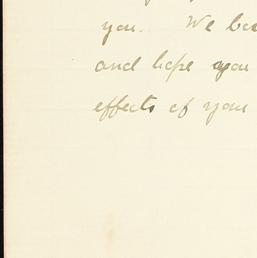 you. We
and hope you
effects of your